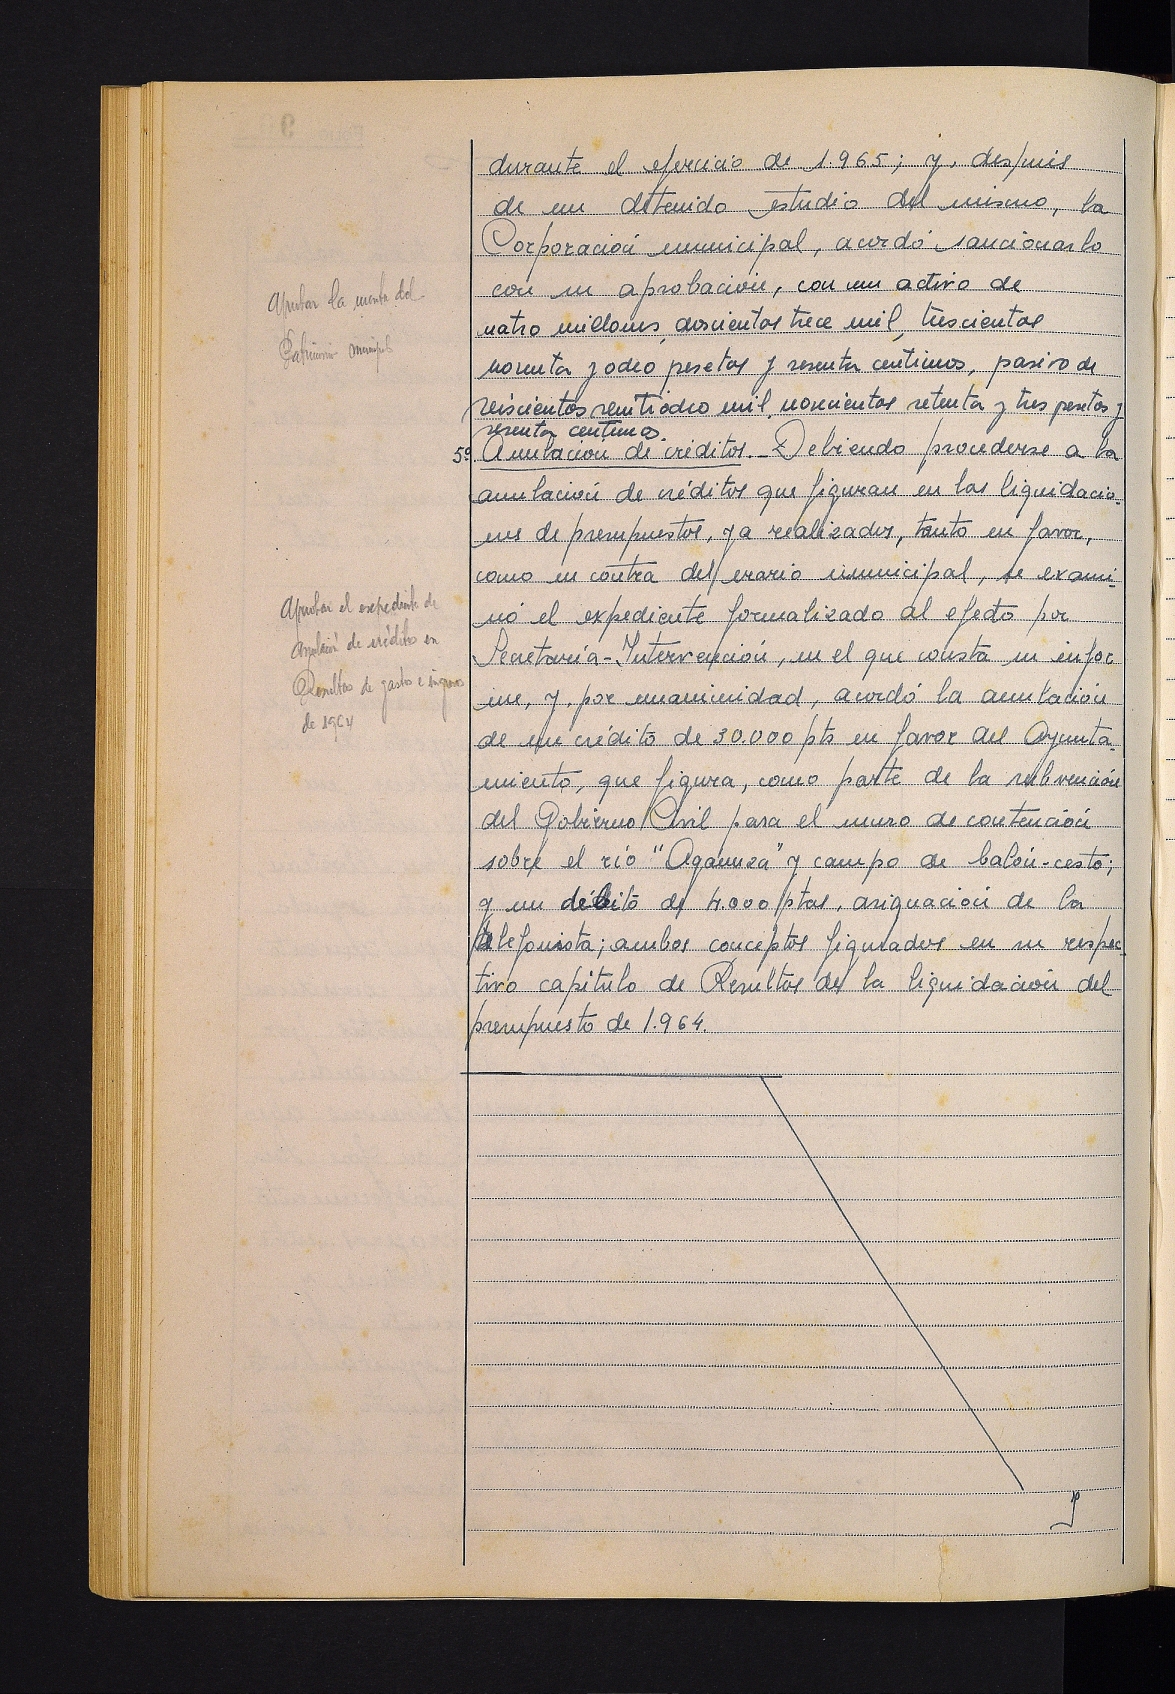 durante el ejercicio de 1.965; y, después
de un detenido estudio del mismo, la
Corporación municipal, acordó sancionarlo
con su aprobación, con un activo de
cuatro millones, doscientos trece mil, trescientas
noventa y ocho pesetas y sesenta centimos, pasivo de
seiscientos veintiocho mil novecientas setenta y tres pesetas y
sesenta centimos.
5º Anulación de créditos.- Debiendo procederse a la
anulación de créditos que figuran en las liquidacio-
nes de presupuestos, ya realizados, tanto en favor,
como en contra del erario municipal, se exami-
nó el expediente formalizado al efecto por
Secretaría-Intervención, en el que consta su infor
me, y, por unanimidad, acordó la anulación
de un crédito de 30.000 pts en favor del Ayunta-
miento, que figura, como parte de la subvención
del Gobierno Civil para el muro de contención
sobre el río "Agaunza" y campo de balón-cesto;
y un débito de 4.000 ptas, asignación de la
telefonista; ambos conceptos figurados en su respec-
tivo capítulo de Resultas de la liquidación del
presupuesto de 1.964.
Aprobar la cuenta del
Patrimonio municipal
Aprobar el expediente de
Anulación de créditos en
Resultas de gastos e ingresos
de 1964